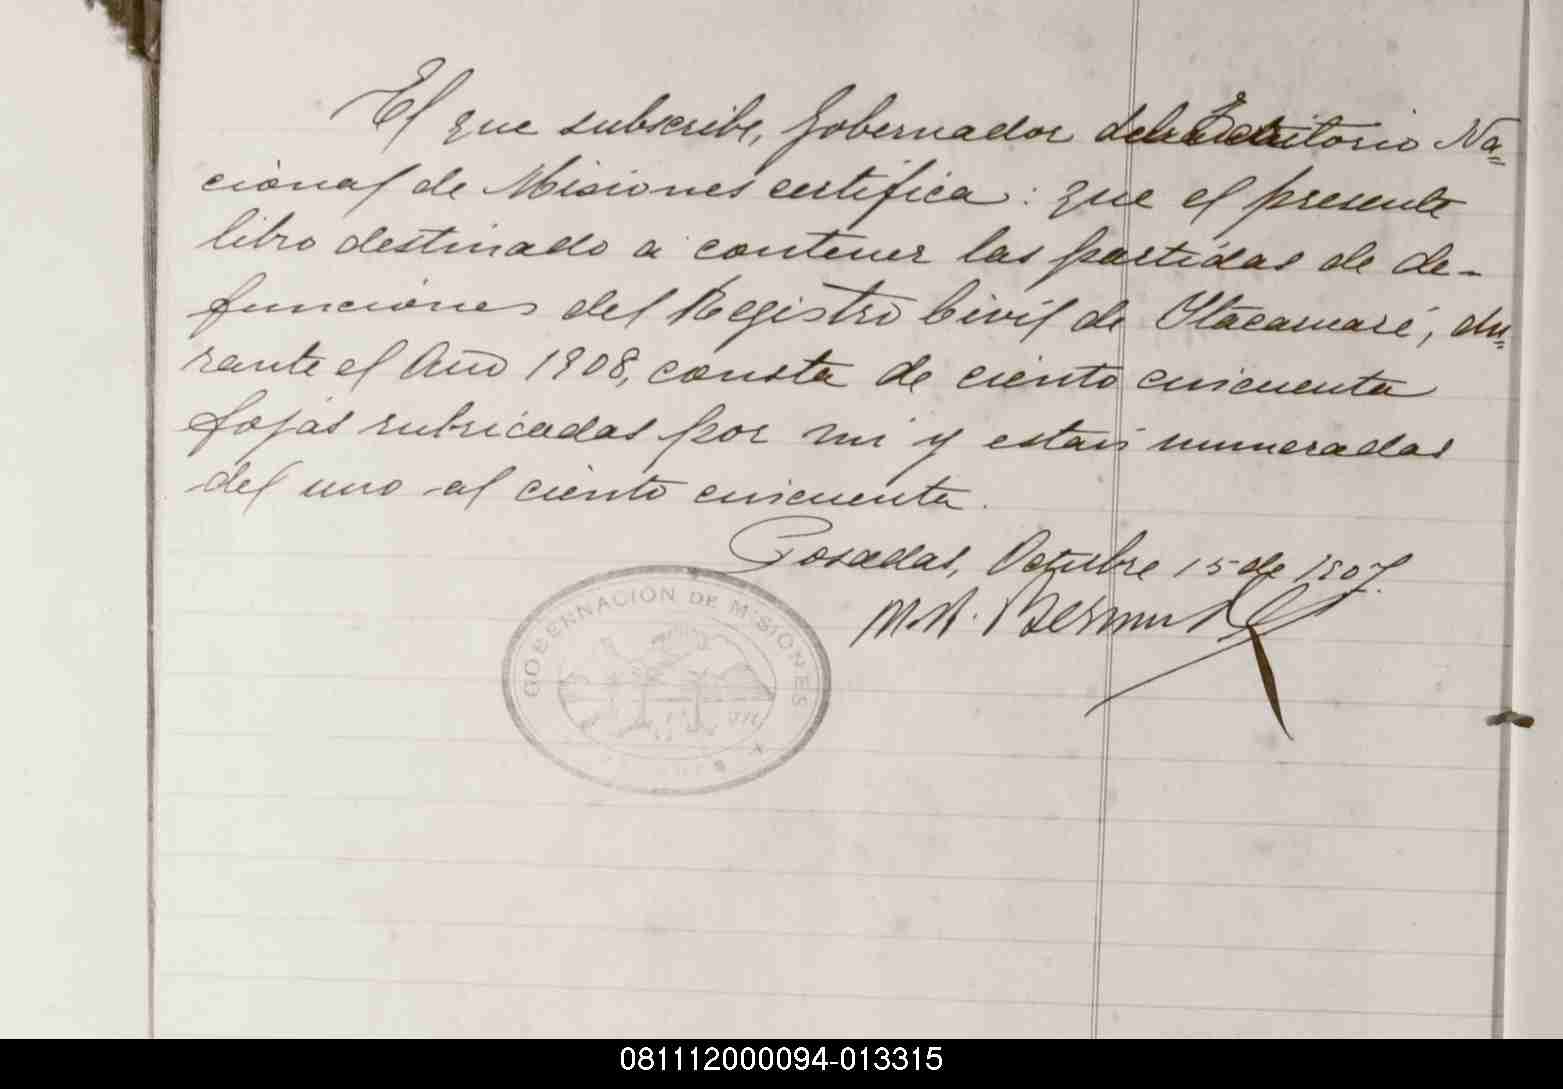 El que subscribe, Gobernador del Territorio Na=
cional de Misiones certifica: que el presente
libro destinado a contener las partidas de de-
funciones del Registro Civil de Itacaruaré, du=
rante el Año 1908, consta de ciento cincuenta
fojas rubricadas por mi y estan numeradas
del uno al ciento cincuenta.
Posadas, Octubre 15 de 1907.
M. A. Bermudez
GOBERNACION DE MISIONES
081112000094-013315